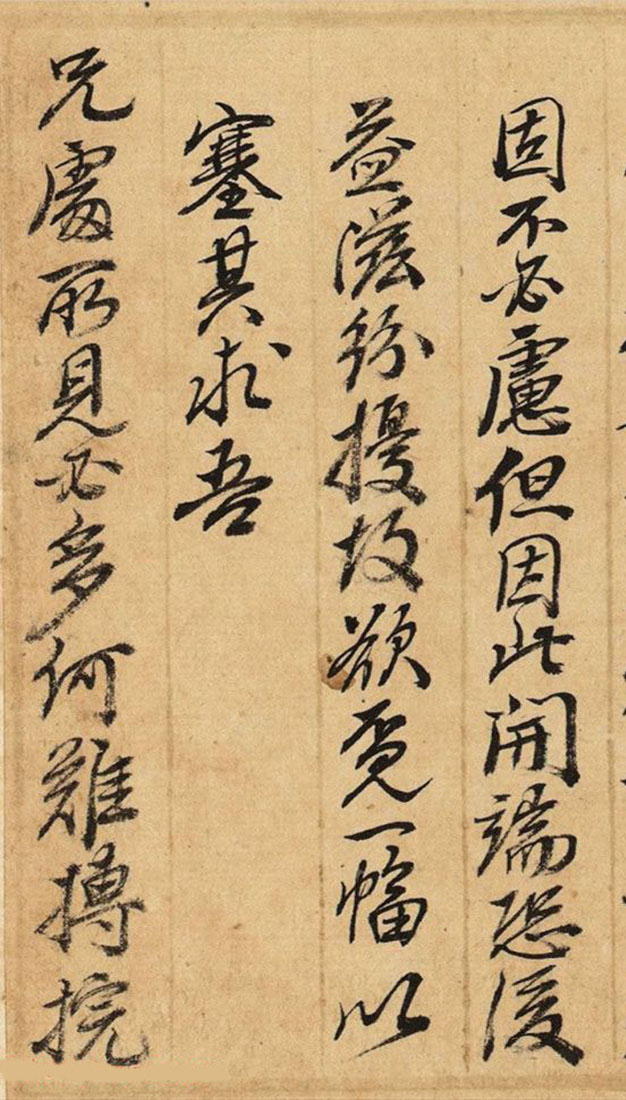 固不必慮但因此開端恐後
益滋紛擾故欲覓一幅以
塞其求吾
兄處所見必多何難摶捖